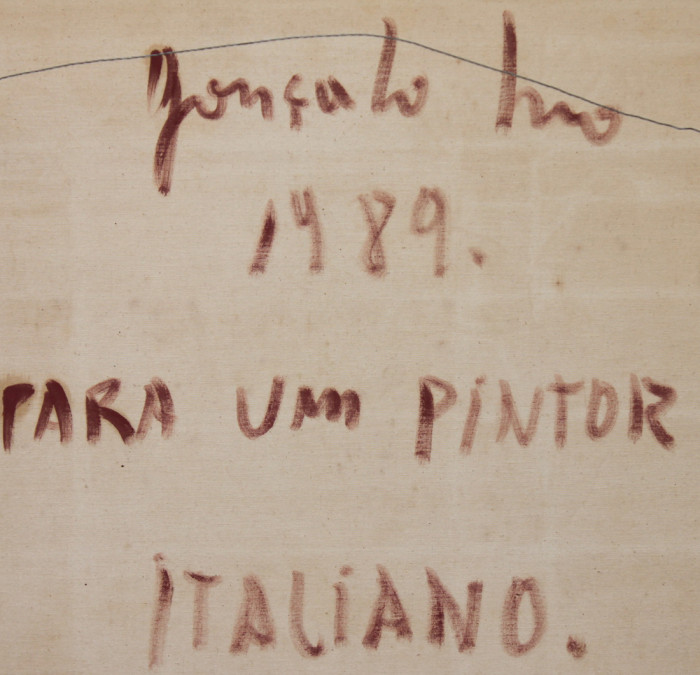 Gonçalo Ivo
1989.
PARA UM PINTOR
ITALIANO.